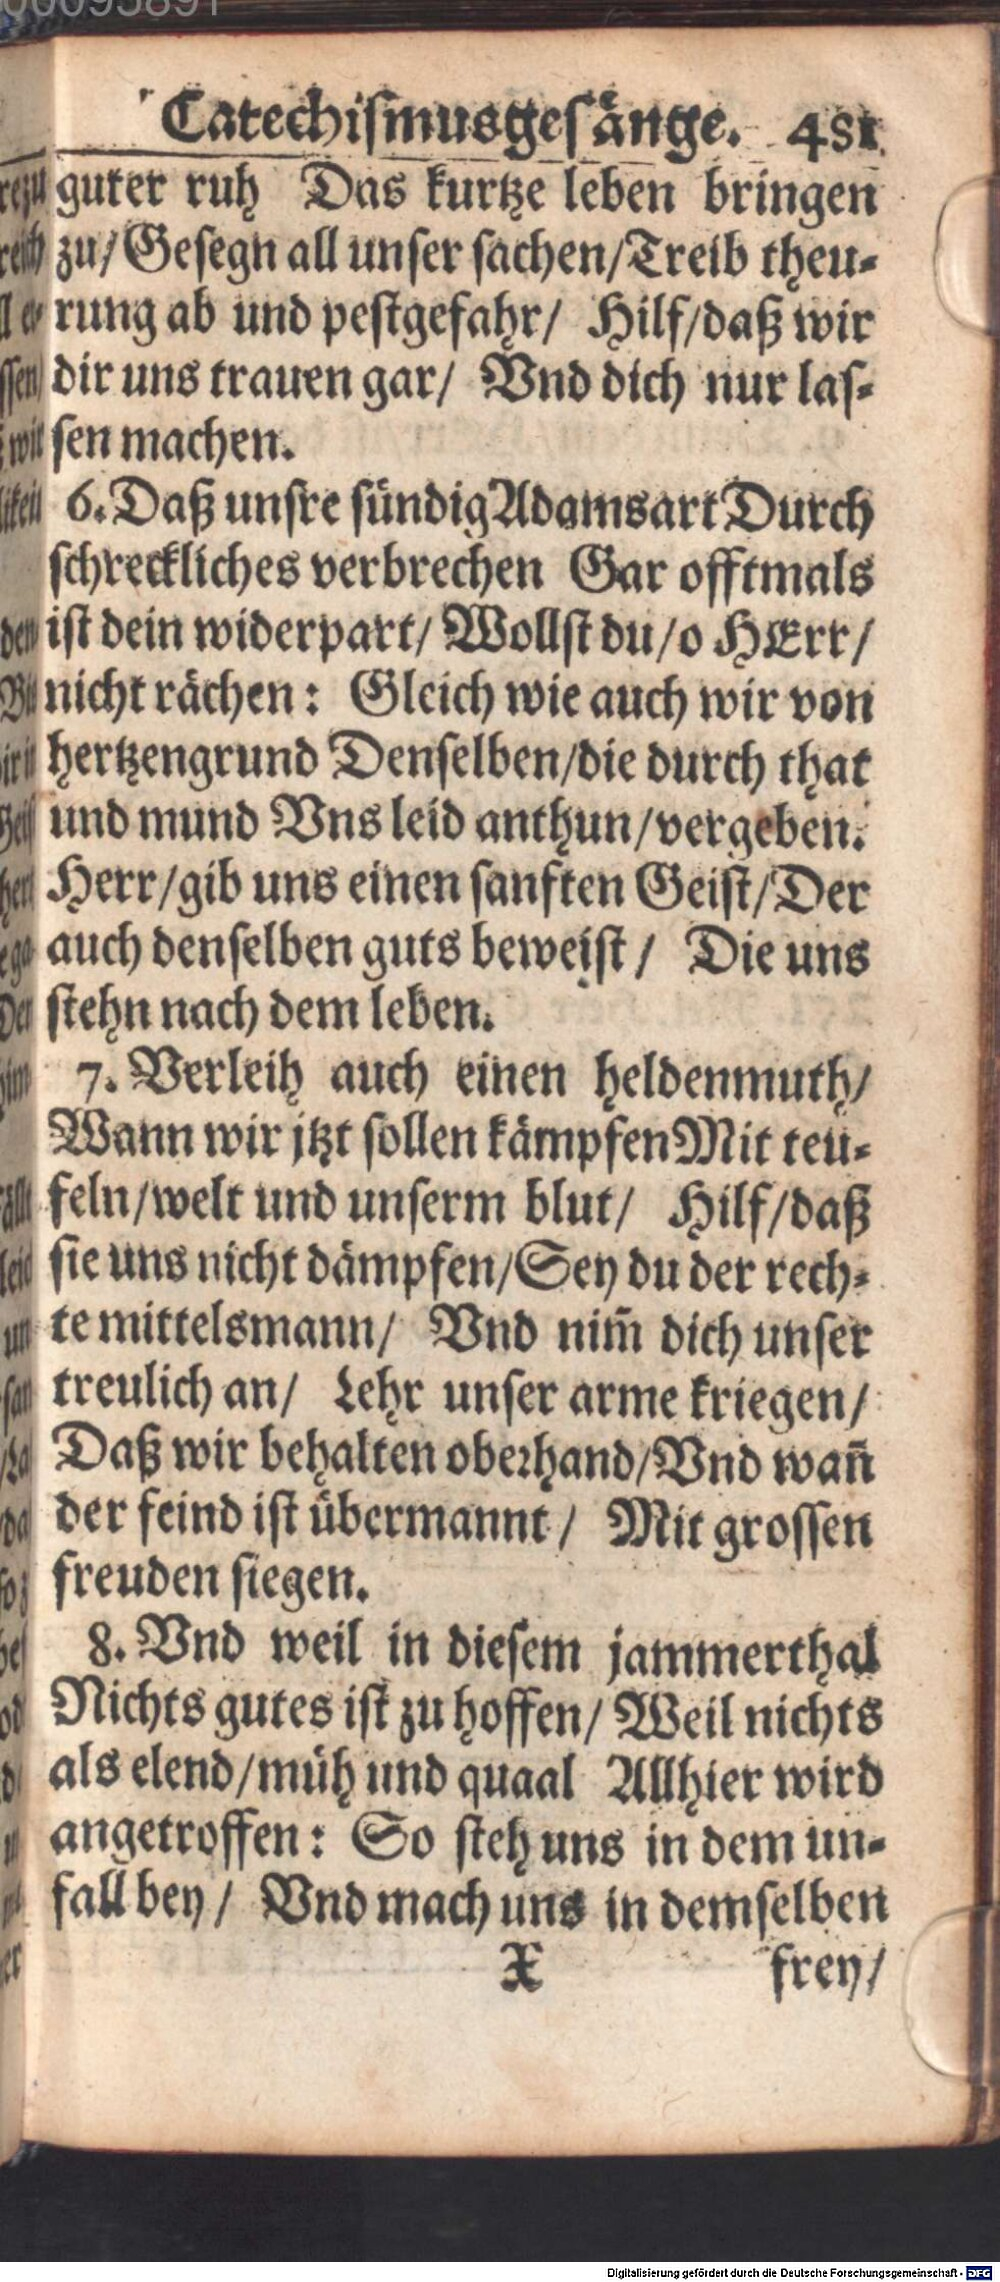 Catechismusgesänge. 481
guter ruh Das kurtze leben bringen
zu/Gesegn all unser sachen/Treib theu-
rung ab und pestgefahr/ Hilf/daß wir
dir uns trauen gar/ Vnd dich nur las-
sen machen.
6. Daß unsre sündig Adamsart Durch
schreckliches verbrechen Gar offtmals
ist dein widerpart/ Wollst du/o HErr/
nicht rächen: Gleich wie auch wir von
hertzengrund Denselben/die durch that
und mund Vns leid anthun/vergeben.
Herr/gib uns einen sanften Geist/Der
auch denselben guts beweist/ Die uns
stehn nach dem leben.
7. Verleih auch einen heldenmuth/
Wann wir jtzt sollen kämpfen Mit teu-
feln/welt und unserm blut/ Hilf/daß
sie uns nicht dämpfen/Sey du der rech-
te mittelsmann/ Vnd nim̄ dich unser
treulich an/ Lehr unser arme kriegen/
Daß wir behalten oberhand/Vnd wan̄
der feind ist übermannt/ Mit grossen
freuden siegen.
8. Vnd weil in diesem jammerthal
Nichts gutes ist zu hoffen/ Weil nichts
als elend/müh und quaal Allhier wird
angetroffen: So steh uns in dem un-
fall bey/ Vnd mach uns in demselben
X frey/
Digitalisierung gefördert durch die Deutsche Forschungsgemeinschaft - DFG